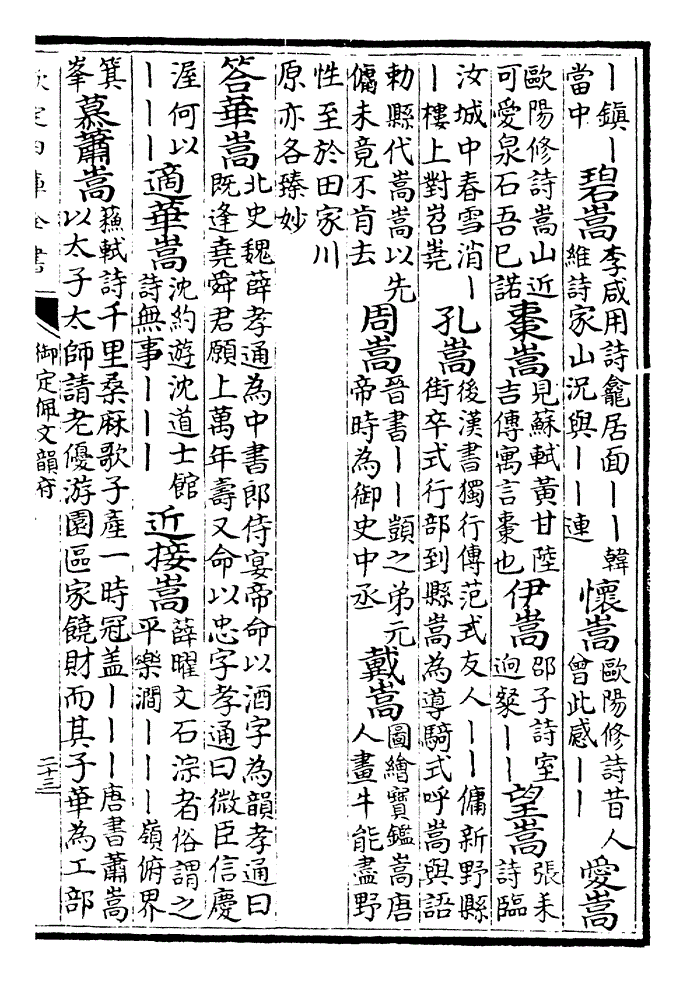 ｜鎮｜當中 碧嵩 李咸用詩龕居面｜｜韓維詩家山況與｜｜連 懷嵩 歐陽修詩昔人曾此感｜｜ 愛嵩
歐陽修詩嵩山近可愛泉石吾已諾 棗嵩 見蘇軾黃甘陸吉傳寓言棗也 伊嵩 邵子詩室逈聚｜｜ 望嵩 張耒詩臨
汝城中春雪消｜｜樓上對岧嶤 孔嵩 後漢書獨行傳范式友人｜｜傭新野縣街卒式行部到縣嵩為導騎式呼嵩與語
勅縣代嵩嵩以先傭未竟不肯去 周嵩 晉書｜｜顗之弟元帝時為御史中丞 戴嵩 圖繪寶鑑嵩唐人畫牛能盡野
性至於田家川原亦各臻妙
答華嵩 北史魏薛孝通為中書郎侍宴帝命以酒字為韻孝通曰既逢堯舜君願上萬年壽又命以忠字孝通曰微臣信慶
渥何以｜｜｜ 適華嵩 沈約遊沈道士館詩無事｜｜｜ 近接嵩 薛曜文石淙者俗謂之平樂澗｜｜｜嶺俯界
箕峯 慕蕭嵩 蘓軾詩千里桑麻歌子產一時冠盖｜｜｜唐書蕭嵩以太子太師請老優游園區家饒財而其子華為工部
欽定四庫全書 御定佩文韻府 二十三